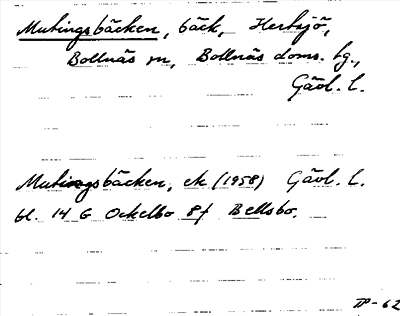 Mutingsbäcken, bäck, Hertsjö,
Bollnäs sn, Bollnäs doms. tg.,
Gävl. l.
Mutingsbäcken, ek (1958) Gävl. l.
bl. 14 G Ockelbo 8f Bellsbo.
-62